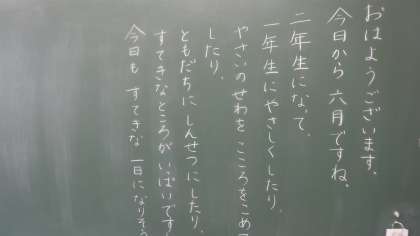 おはようございます。
今日から 六月ですね。
二年生になって、
一年生にやさしくしたり、
やさいのせわを こころをこめて
したり、
ともだちに しんせつにしたり、
すてきなところが いっぱいです
今日も すてきな 一日になりそう